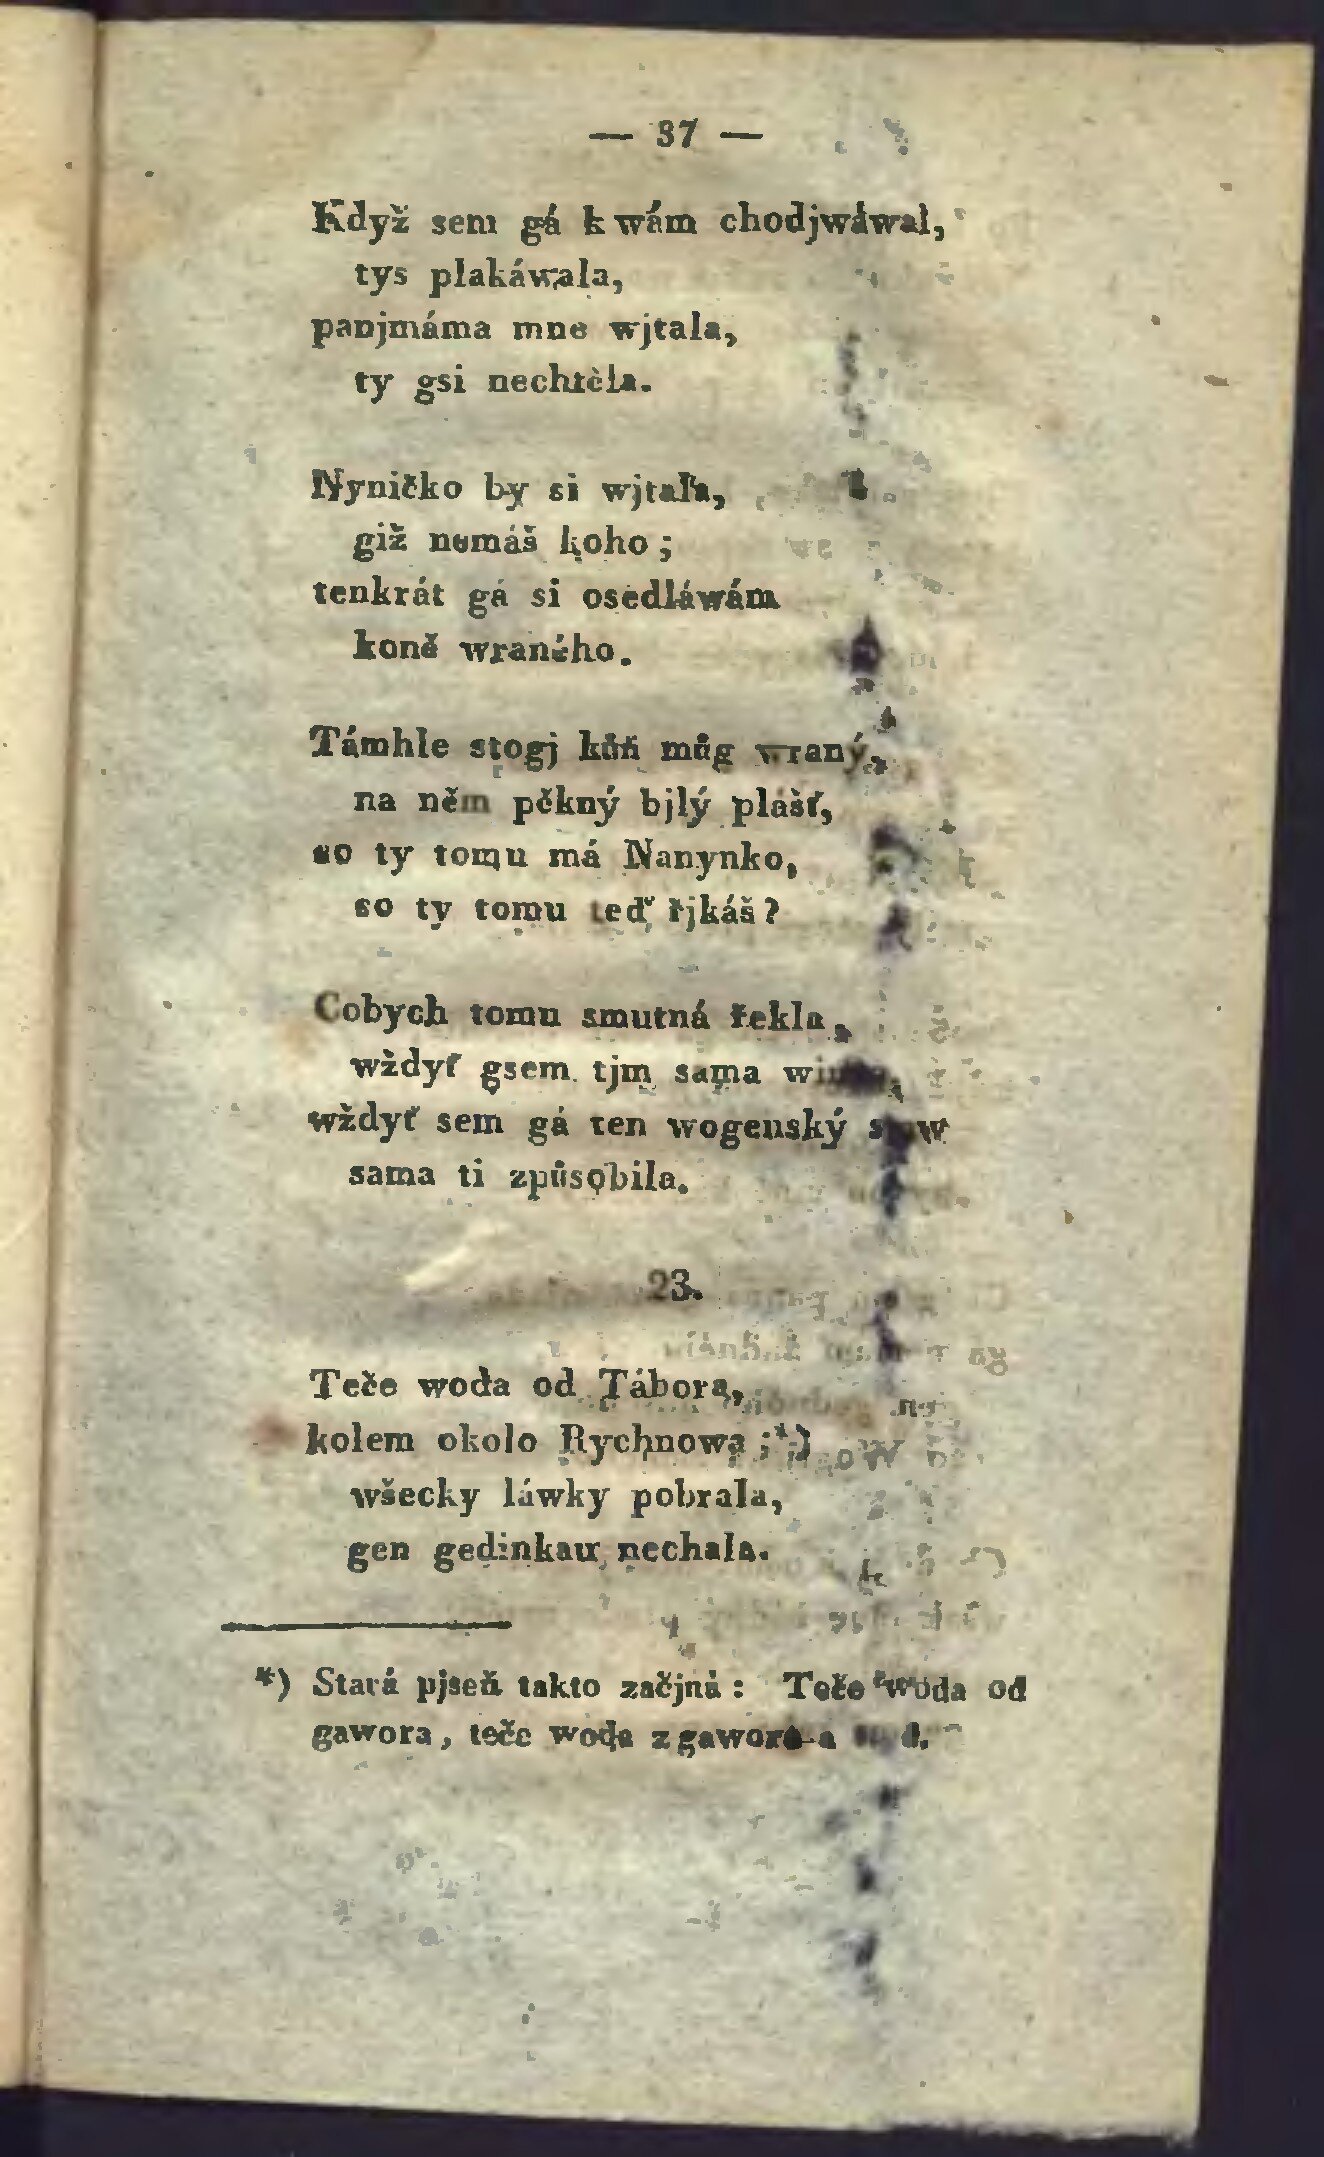 — 37 —
Když sem gá k wám chodjwáwal,
tys plakáwala,
panjmáma mne wjtala,
ty gsi nechtěla.
Nyničko by si wjtala,
giž nemáš koho;
tenkrát gá si osedláwám
koně wraného.
Támhle stogj kůň můg wraný,
na něm pěkný bjlý plášť,
co ty tomu má Nanynko,
co ty tomu teď řjkáš?
Cobych tomu smutná řekla,
wždyť gsem tjm sama
wždyť sem gá ten wogenský
sama ti způsobila.
23.
Teče woda od Tábora,
kolem okolo Rychnowa;*)
wšecky láwky pobrala,
gen gedinkau nechala.
*) Stará pjseň takto začjná: Teče woda od
gawora, teče woda z gawora a